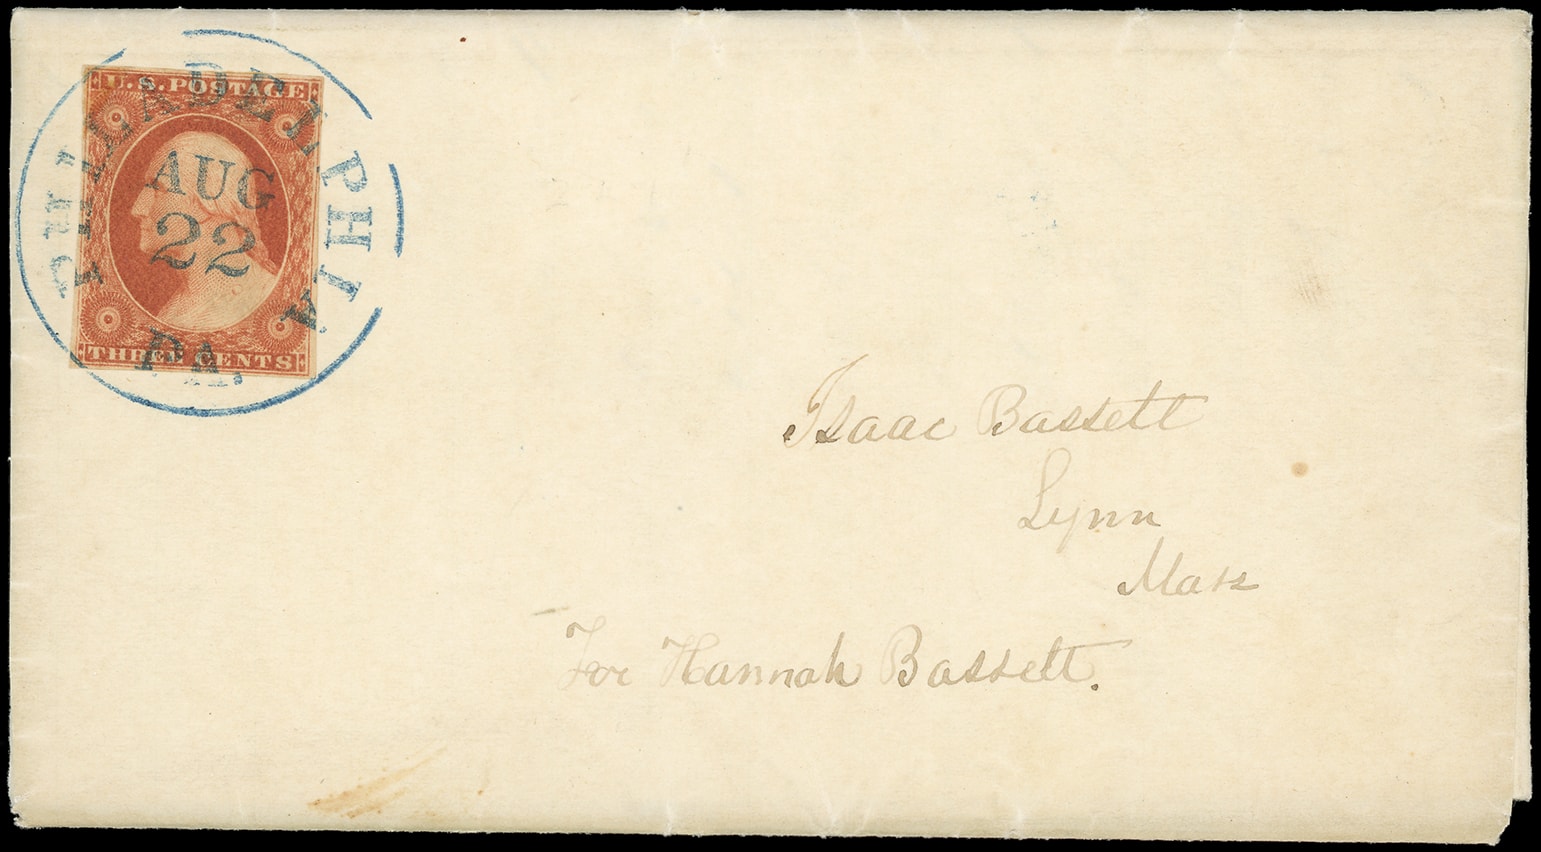 U.S. POSTAGE
PHILADELPHIA
AUG
22
PA.
THREE CENTS
Isaac Bassett
Lynn
Mass
For Hannah Bassett.